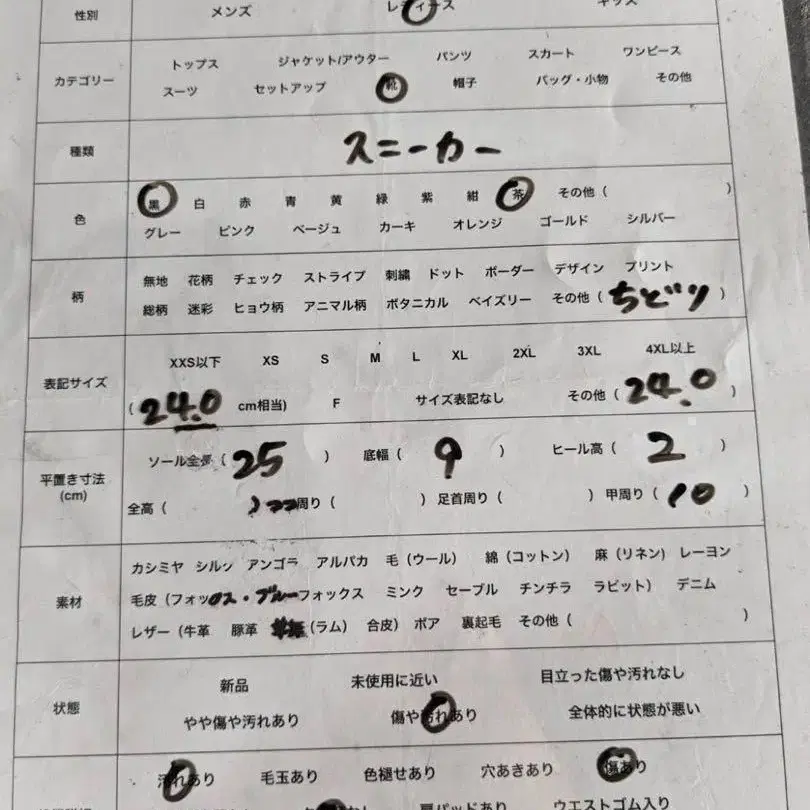 性別 メンズ レディース キッズ
カテゴリー
トップス ジャケット/アウター パンツ スカート ワンピース
スーツ セットアップ 靴 帽子 バッグ・小物 その他
種類 スニーカー
色
黒 白 赤 青 黄 緑 紫 紺 茶 その他 ( )
グレー ピンク ベージュ カーキ オレンジ ゴールド シルバー
柄
無地 花柄 チェック ストライプ 刺繍 ドット ボーダー デザイン プリント
総柄 迷彩 ヒョウ柄 アニマル柄 ボタニカル ペイズリー その他 ( ちどり )
表記サイズ
XXS以下 XS S M L XL 2XL 3XL 4XL以上
( 24.0 cm相当) F サイズ表記なし その他 ( 24.0 )
平置き寸法
(cm)
ソール全長 ( 25 ) 底幅 ( 9 ) ヒール高 ( 2 )
全高 ( ) 周り ( ) 足首周り ( ) 甲周り ( 10 )
素材
カシミヤ シルク アンゴラ アルパカ 毛 (ウール) 綿 (コットン) 麻 (リネン) レーヨン
毛皮 (フォックス・ブルーフォックス ミンク セーブル チンチラ ラビット) デニム
レザー (牛革 豚革 (ラム) 合皮) ボア 裏起毛 その他 ( )
状態
新品 未使用に近い 目立った傷や汚れなし
やや傷や汚れあり 傷や汚れあり 全体的に状態が悪い
汚れあり 毛玉あり 色褪せあり 穴あきあり 傷あり
肩パッドあり ウエストゴム入り